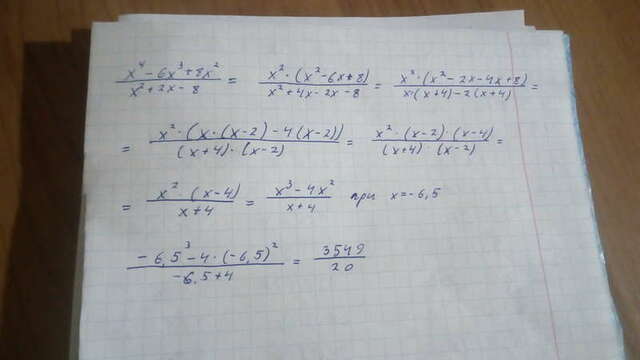 (x⁴ - 6x³ + 8x²)/(x² + 2x - 8) = (x² · (x² - 6x + 8))/(x² + 4x - 2x - 8) = (x² · (x² - 2x - 4x + 8))/(x · (x+4) - 2(x+4)) =
= (x² · (x · (x-2) - 4(x-2)))/((x+4) · (x-2)) = (x² · (x-2) · (x-4))/((x+4) · (x-2)) =
= (x² · (x-4))/(x+4) = (x³ - 4x²)/(x+4) при x = -6,5
(-6,5³ - 4 · (-6,5)²)/(-6,5+4) = 3549/20